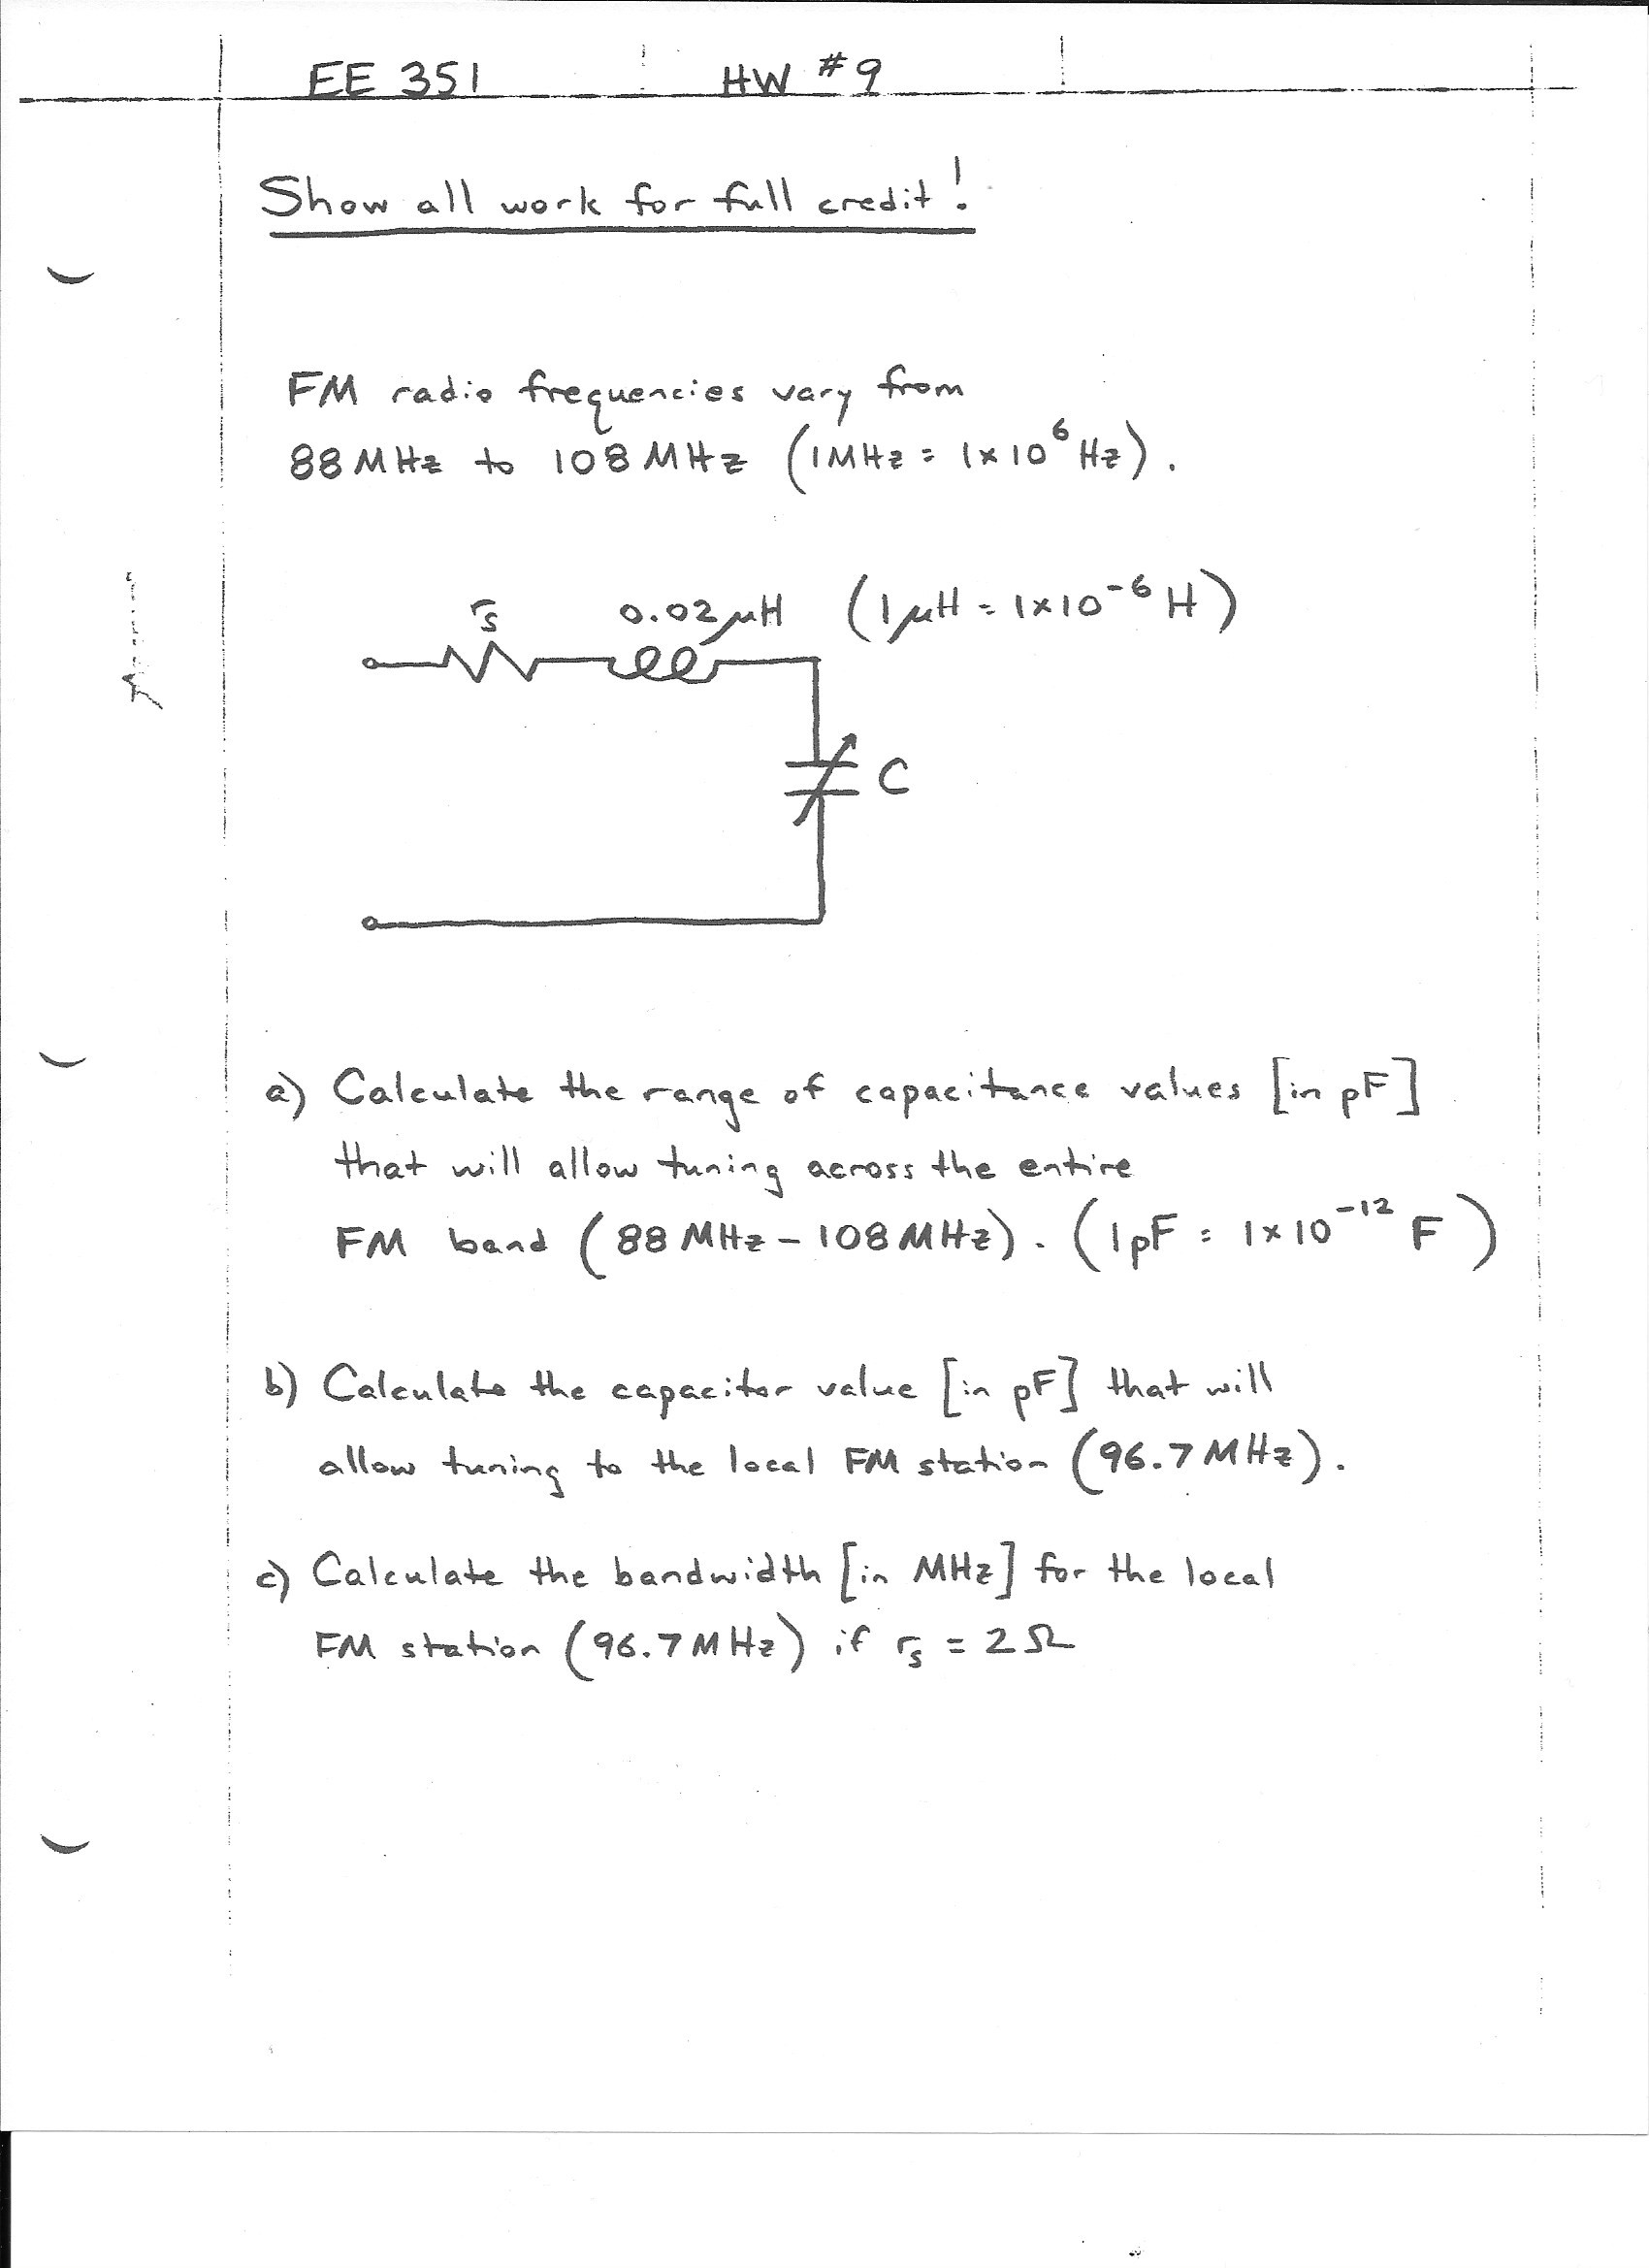 EE 351 HW #9
Show all work for full credit!
FM radio frequencies vary from
88 MHz to 108 MHz (1MHz = 1×10⁶ Hz).
rₛ 0.02μH (1μH = 1×10⁻⁶ H)
C
a) Calculate the range of capacitance values [in pF]
that will allow tuning across the entire
FM band (88 MHz - 108 MHz). (1pF = 1×10⁻¹² F)
b) Calculate the capacitor value [in pF] that will
allow tuning to the local FM station (96.7 MHz).
c) Calculate the bandwidth [in MHz] for the local
FM station (96.7 MHz) if rₛ = 2Ω